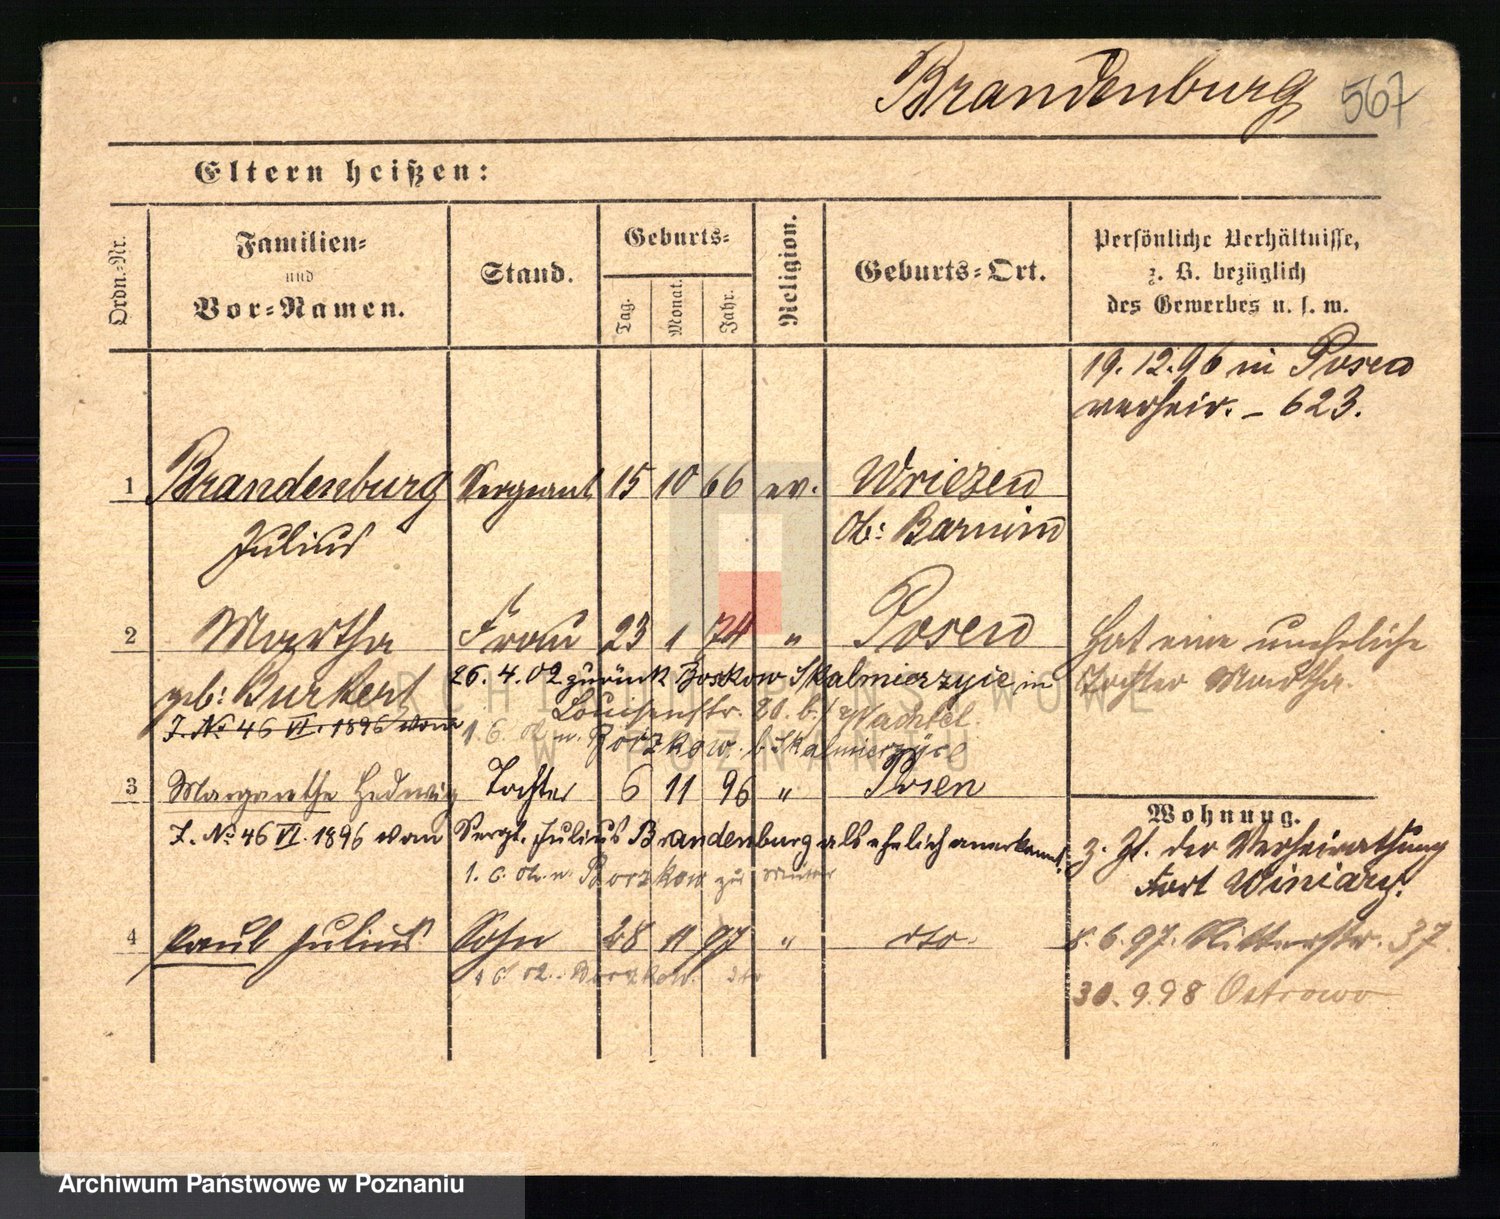 Brandenburg 567
Eltern heißen:
Ordn.-Nr.
Familien-
und
Vor-Namen.
Stand.
Geburts-
Tag.
Monat.
Jahr.
Religion.
Geburts-Ort.
Persönliche Verhältnisse,
z. B. bezüglich
des Gewerbes u. s. w.
19.12.96 in Posen
verheir. – 623.
1 Brandenburg Sergeant 15 10 66 ev. Wriezen
Julius Ob: Barnim
2 Martha Frau 23 1 74 " Posen Hat eine uneheliche
geb: Burkert 26.4.02 zurück Boskow Skalmierzyce in Tochter Martha.
Louisenstr. 20. b/ Wachtel.
J. No 46 VI. 1896 vom 1.6.02 n. Borzkow b. Skalmierzyce
3 Margarethe Hedwig Tochter 6 11 96 " Posen
Wohnung.
J. No 46 VI. 1896 vom Sergt. Julius Brandenburg als ehelich anerkannt.
z. Zt. der Verheirathung
Fort Winiary.
1.6.02 n. Borzkow zur Mutter
4 Paul Julius Sohn 28 11 97 " dto.
8.6.97. Ritterstr. 37.
1.6.02. Borzkow. dto
30.9.98 Ostrowo
ARCHIWUM PAŃSTWOWE
W POZNANIU
Archiwum Państwowe w Poznaniu